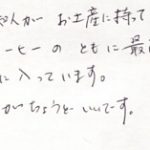 知人が お土産に持って
ーヒーの ともに 最
に入っています。
がちょうど いいです。